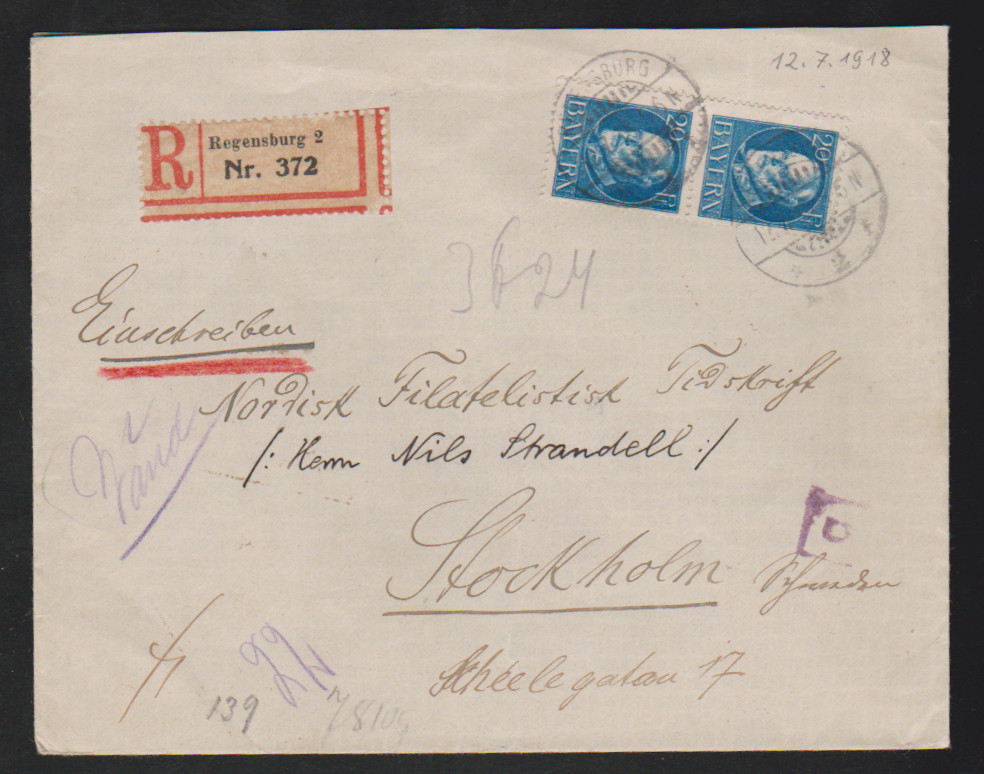 12.7.1918
SBURG
R
Regensburg 2
Nr. 372
20 Pf
BAYERN
20 Pf
BAYERN
3624
Einschreiben
Nordisk Filatelistisk Tidskrift
/: Herrn Nils Strandell :/
Stockholm
Schweden
Scheelegatan 17
22
139